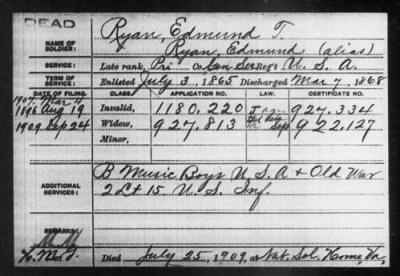 DEAD
NAME OF SOLDIER:
Ryan, Edmund T.
Ryan, Edmund (alias)
SERVICE: Late rank, Pri Co. Gen Ser Reg't U. S. A.
TERM OF SERVICE: Enlisted July 3, 1865 Discharged Mar 7, 1868
DATE OF FILING. CLASS. APPLICATION NO. LAW. CERTIFICATE NO.
1907 Mar 4
1896 Aug 19 Invalid, 1180.220 927.334
1909 Sep 24 Widow, 927.813 Sep 922,127
Minor,
ADDITIONAL SERVICES:
B Music Boys U S A & Old War
2 Lt 15 U. S. Inf.
REMARKS:
Died July 25, 1909, at Nat. Sol. Home, Va,